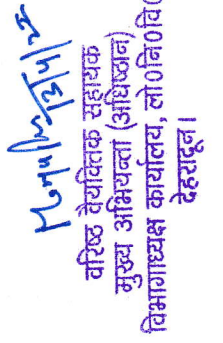 वरिष्ठ वैयक्तिक सहायक
मुख्य अभियन्ता (अधिष्ठान)
विभागाध्यक्ष कार्यालय, लो०नि०वि०
देहरादून।